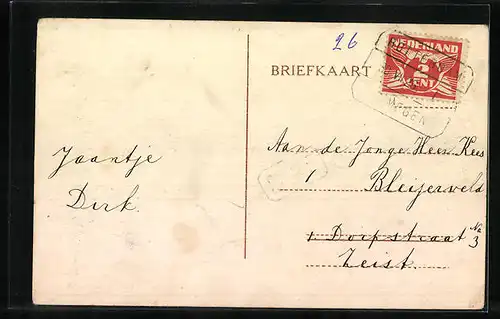 26
BRIEFKAART
NEDERLAND
2
CENT
Jaantje
Dirk.
Aan de Jonge Heer Kees
Bleijerveld
Dorpstraat No 3
Zeist.